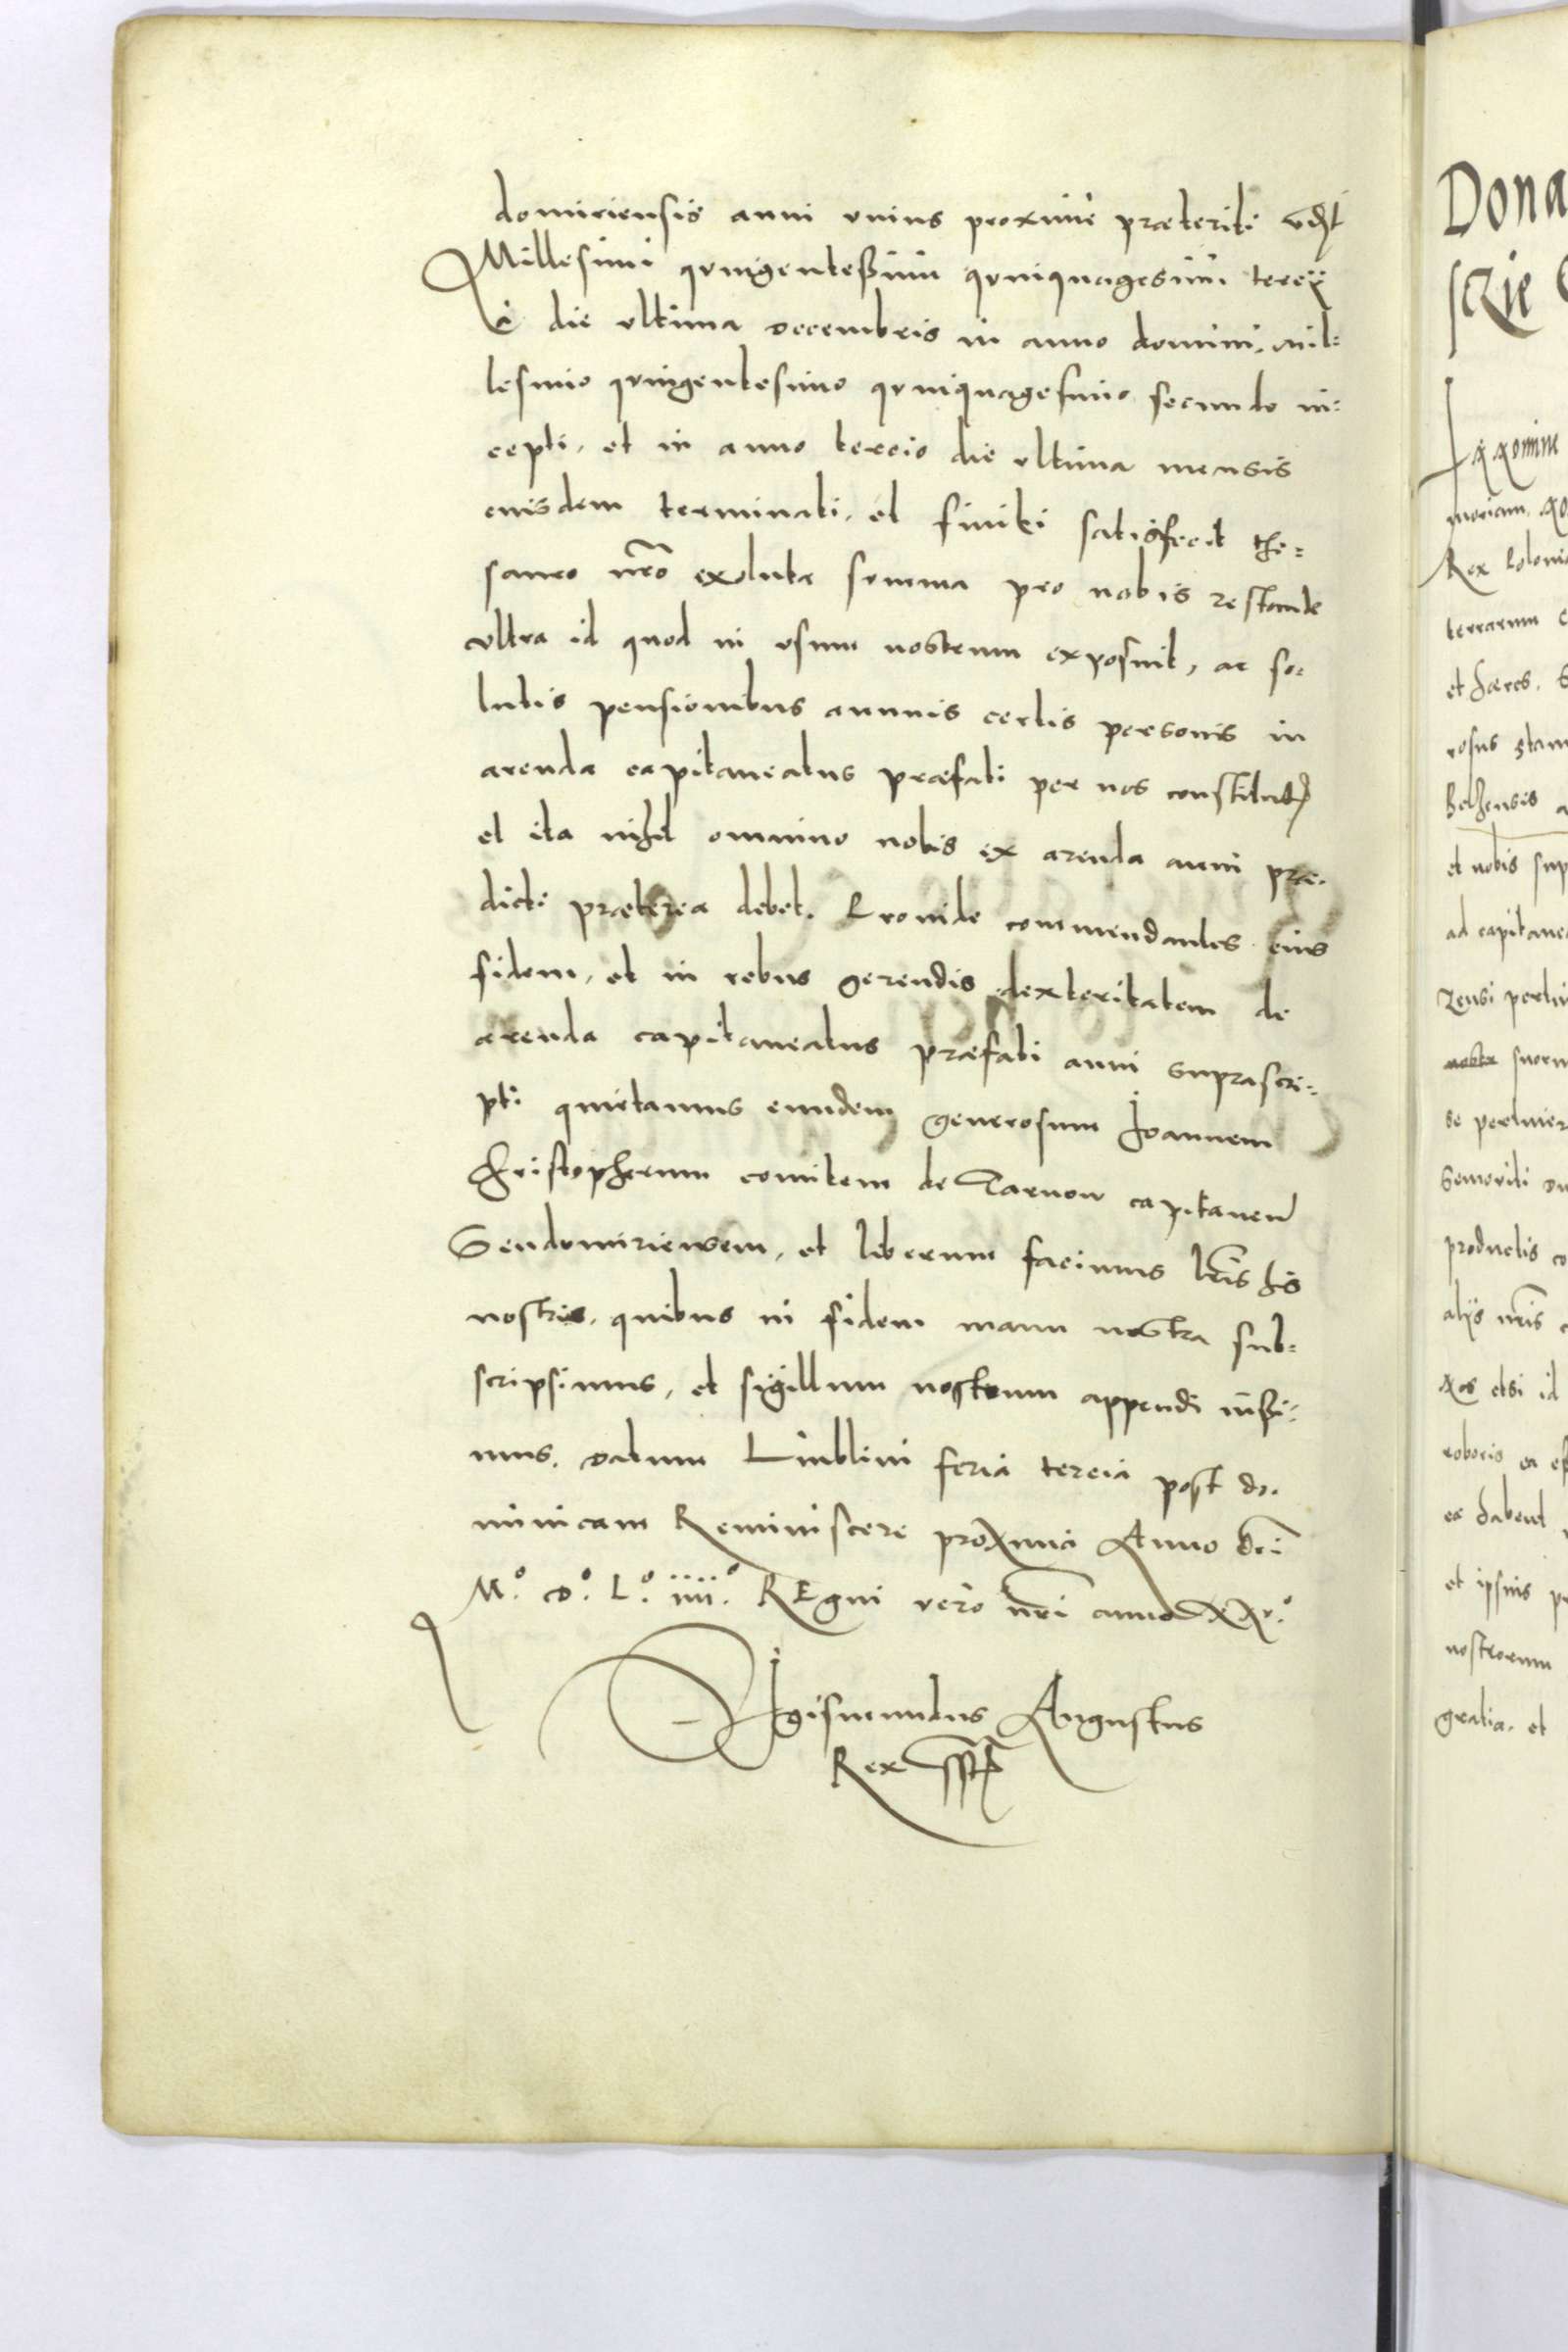 domiriensis anni vnius proxime præteriti vdzt
Millesimi quingentessimi quinquagesimi tercij
A die vltima decembris in anno domini mil=
lesimo quingentesimo quinquagesimo secundo in=
cepti, et in anno tercio die vltima mensis
eiusdem terminati, et finiti satisfecit the=
sauro nr̃o exoluta summa pro nobis restante
vltra id quod in vsum nostrum exposuit, ac so=
lutis pensionibus annuis certis personis in
arenda capitaneatus præfati per nos constitutis
et ita nihil omnino nobis ex arenda anni præ=
dicti præterea debet. Proinde commendantes eius
fidem, et in rebus gerendis dexteritatem de
arenda capitaneatus præfati anni suprascri=
pti quietamus eundem generosum Joannem
Christopherum comitem de Tarnow capitaneũ
Sendomiriensem, et liberum facimus lr̃is his
nostris, quibus in fidem manu nostra sub=
scripsimus, et sigillum nostrum appendi iussi=
mus. datum Lublini feria tercia post do=
minicam Reminiscere proxima Anno dñi
M.º D.º L.º iiii.º REgni vero nr̃i anno XXV.º
Sigismundus Augustus
Rex sst
Dona
sczie
In nomine
moriam. 
Rex Poloniæ
terrarum
et hæres.
rosus Stan
Belzensis
et nobis sup
ad capitane
zensi pertin
suorum
se pertiner
Semoriti
productis co
alijs nr̃is
Nos etsi id
roboris ea
ea habent
et ipsius
nostrorum
gratia. et